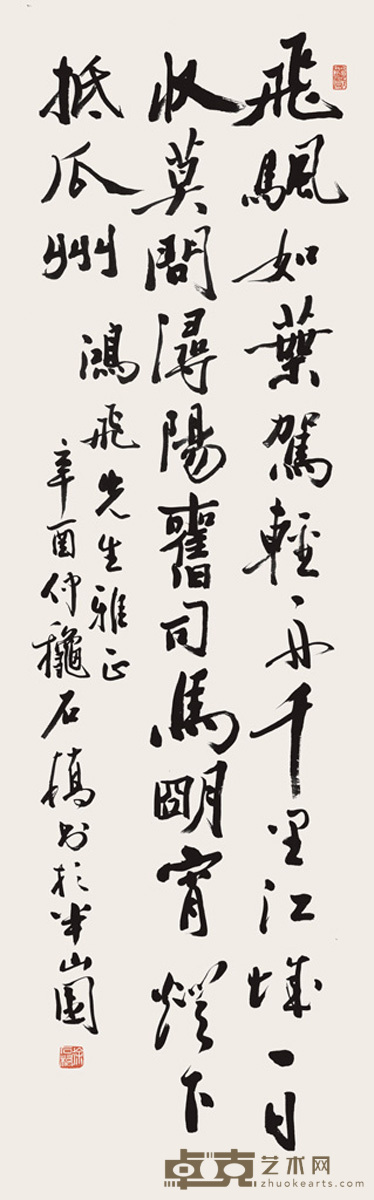 飛颿如葉駕輕舟千里江城一日
收莫問潯陽舊司馬朙宵燈下
抵瓜州
鴻飛先生雅正
辛酉仲龝石橋書於半山園
卓克艺术网
zhuokearts.com